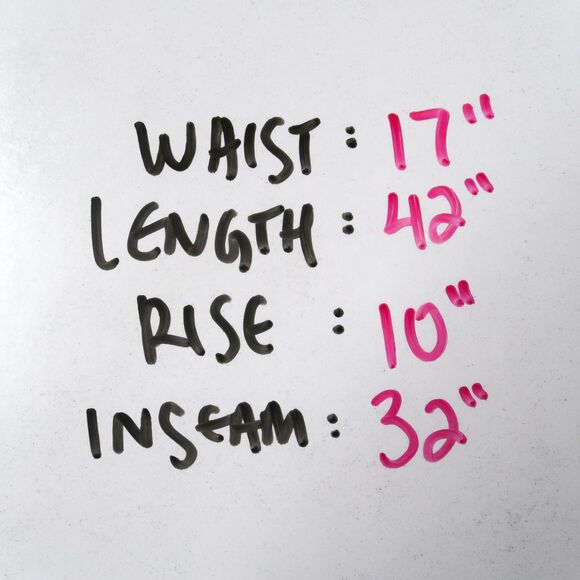 WAIST : 17"
LENGTH : 42"
RISE : 10"
INSEAM : 32"